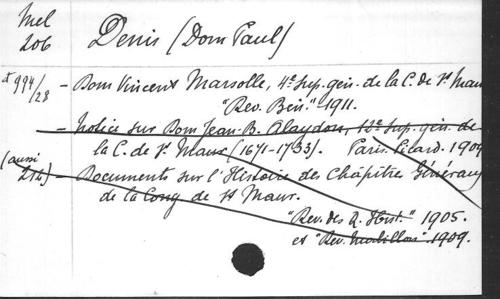 Mel
206
Denis (Dom Paul)
994/28 - Dom Vincent Marsolle, 4e Sup. gén. de la C. de St Maur
"Rev. Bén." 1911.
- Notice sur Dom Jean-B. Alaydon, 12e Sup. gén. de
la C. de St Maur (1671-1733). Paris. Picard. 1909
(aussi
214) - Documents sur l'Histoire des Chapitres Généraux
de la Cong de St Maur.
"Rev. des Q. Hist." 1905.
et "Rev. Mabillon" 1909.